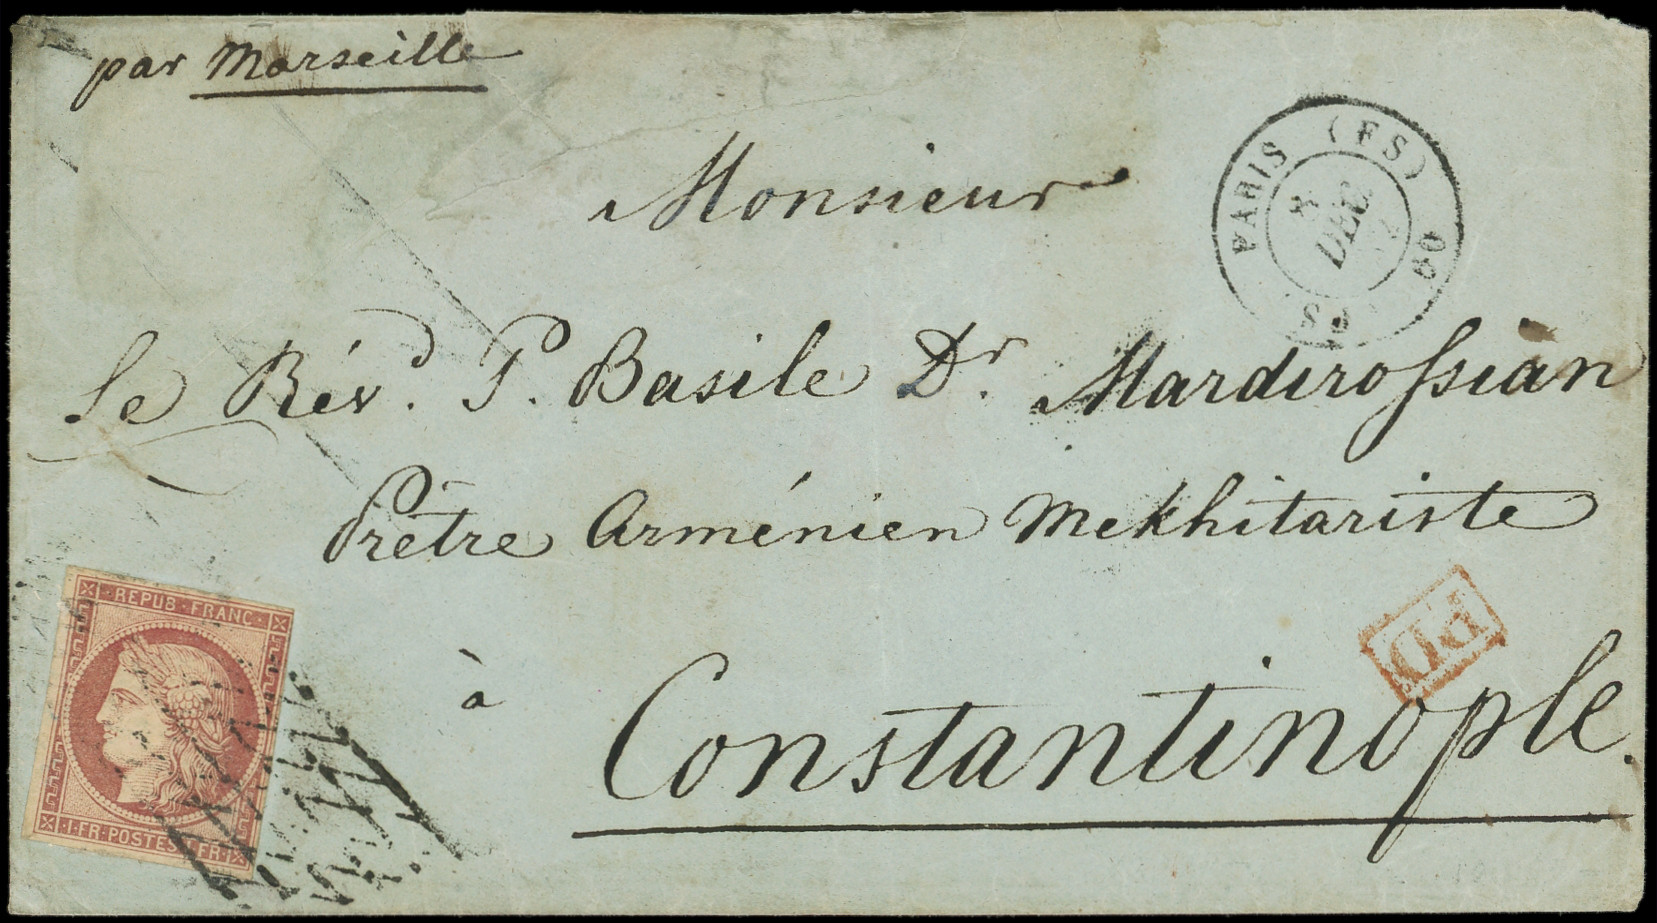 par Marseille
PARIS (FS)
8
DEC
60
Monsieur
Le Révd. P. Basile Dr. Mardirossian
Prêtre Arménien Mekhitariste
à
Constantinople.
PD
REPUB FRANC
1 FR POSTES 1 FR